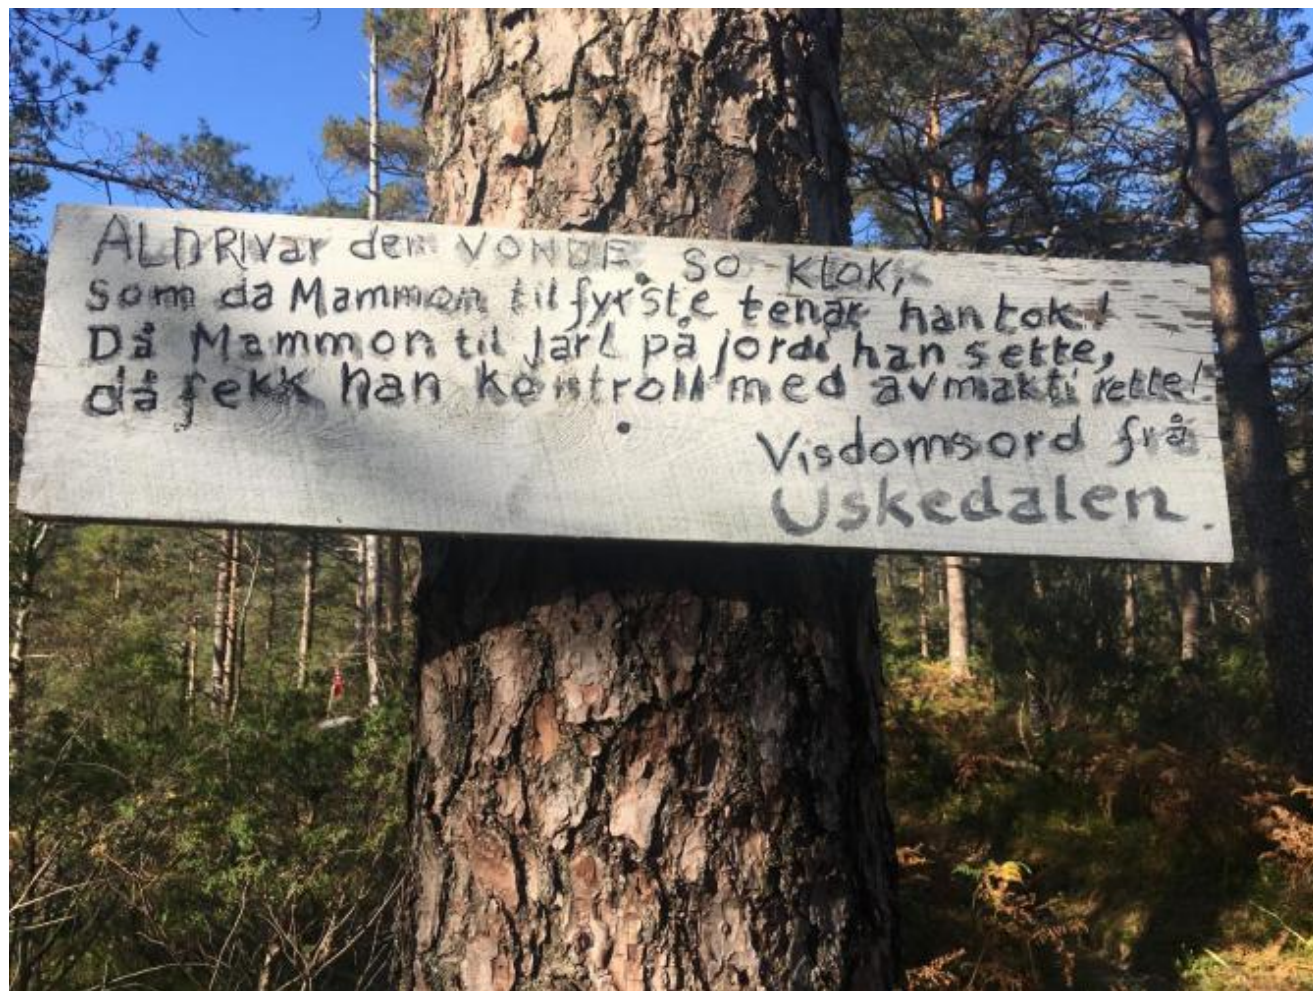 ALDRI var den VONDE so KLOK,
Som da Mammon til fyrste tenar han tok!
Då Mammon til Jarl på jordi han sette,
då fekk han kontroll med avmakti rette!
Visdomsord frå
Uskedalen.